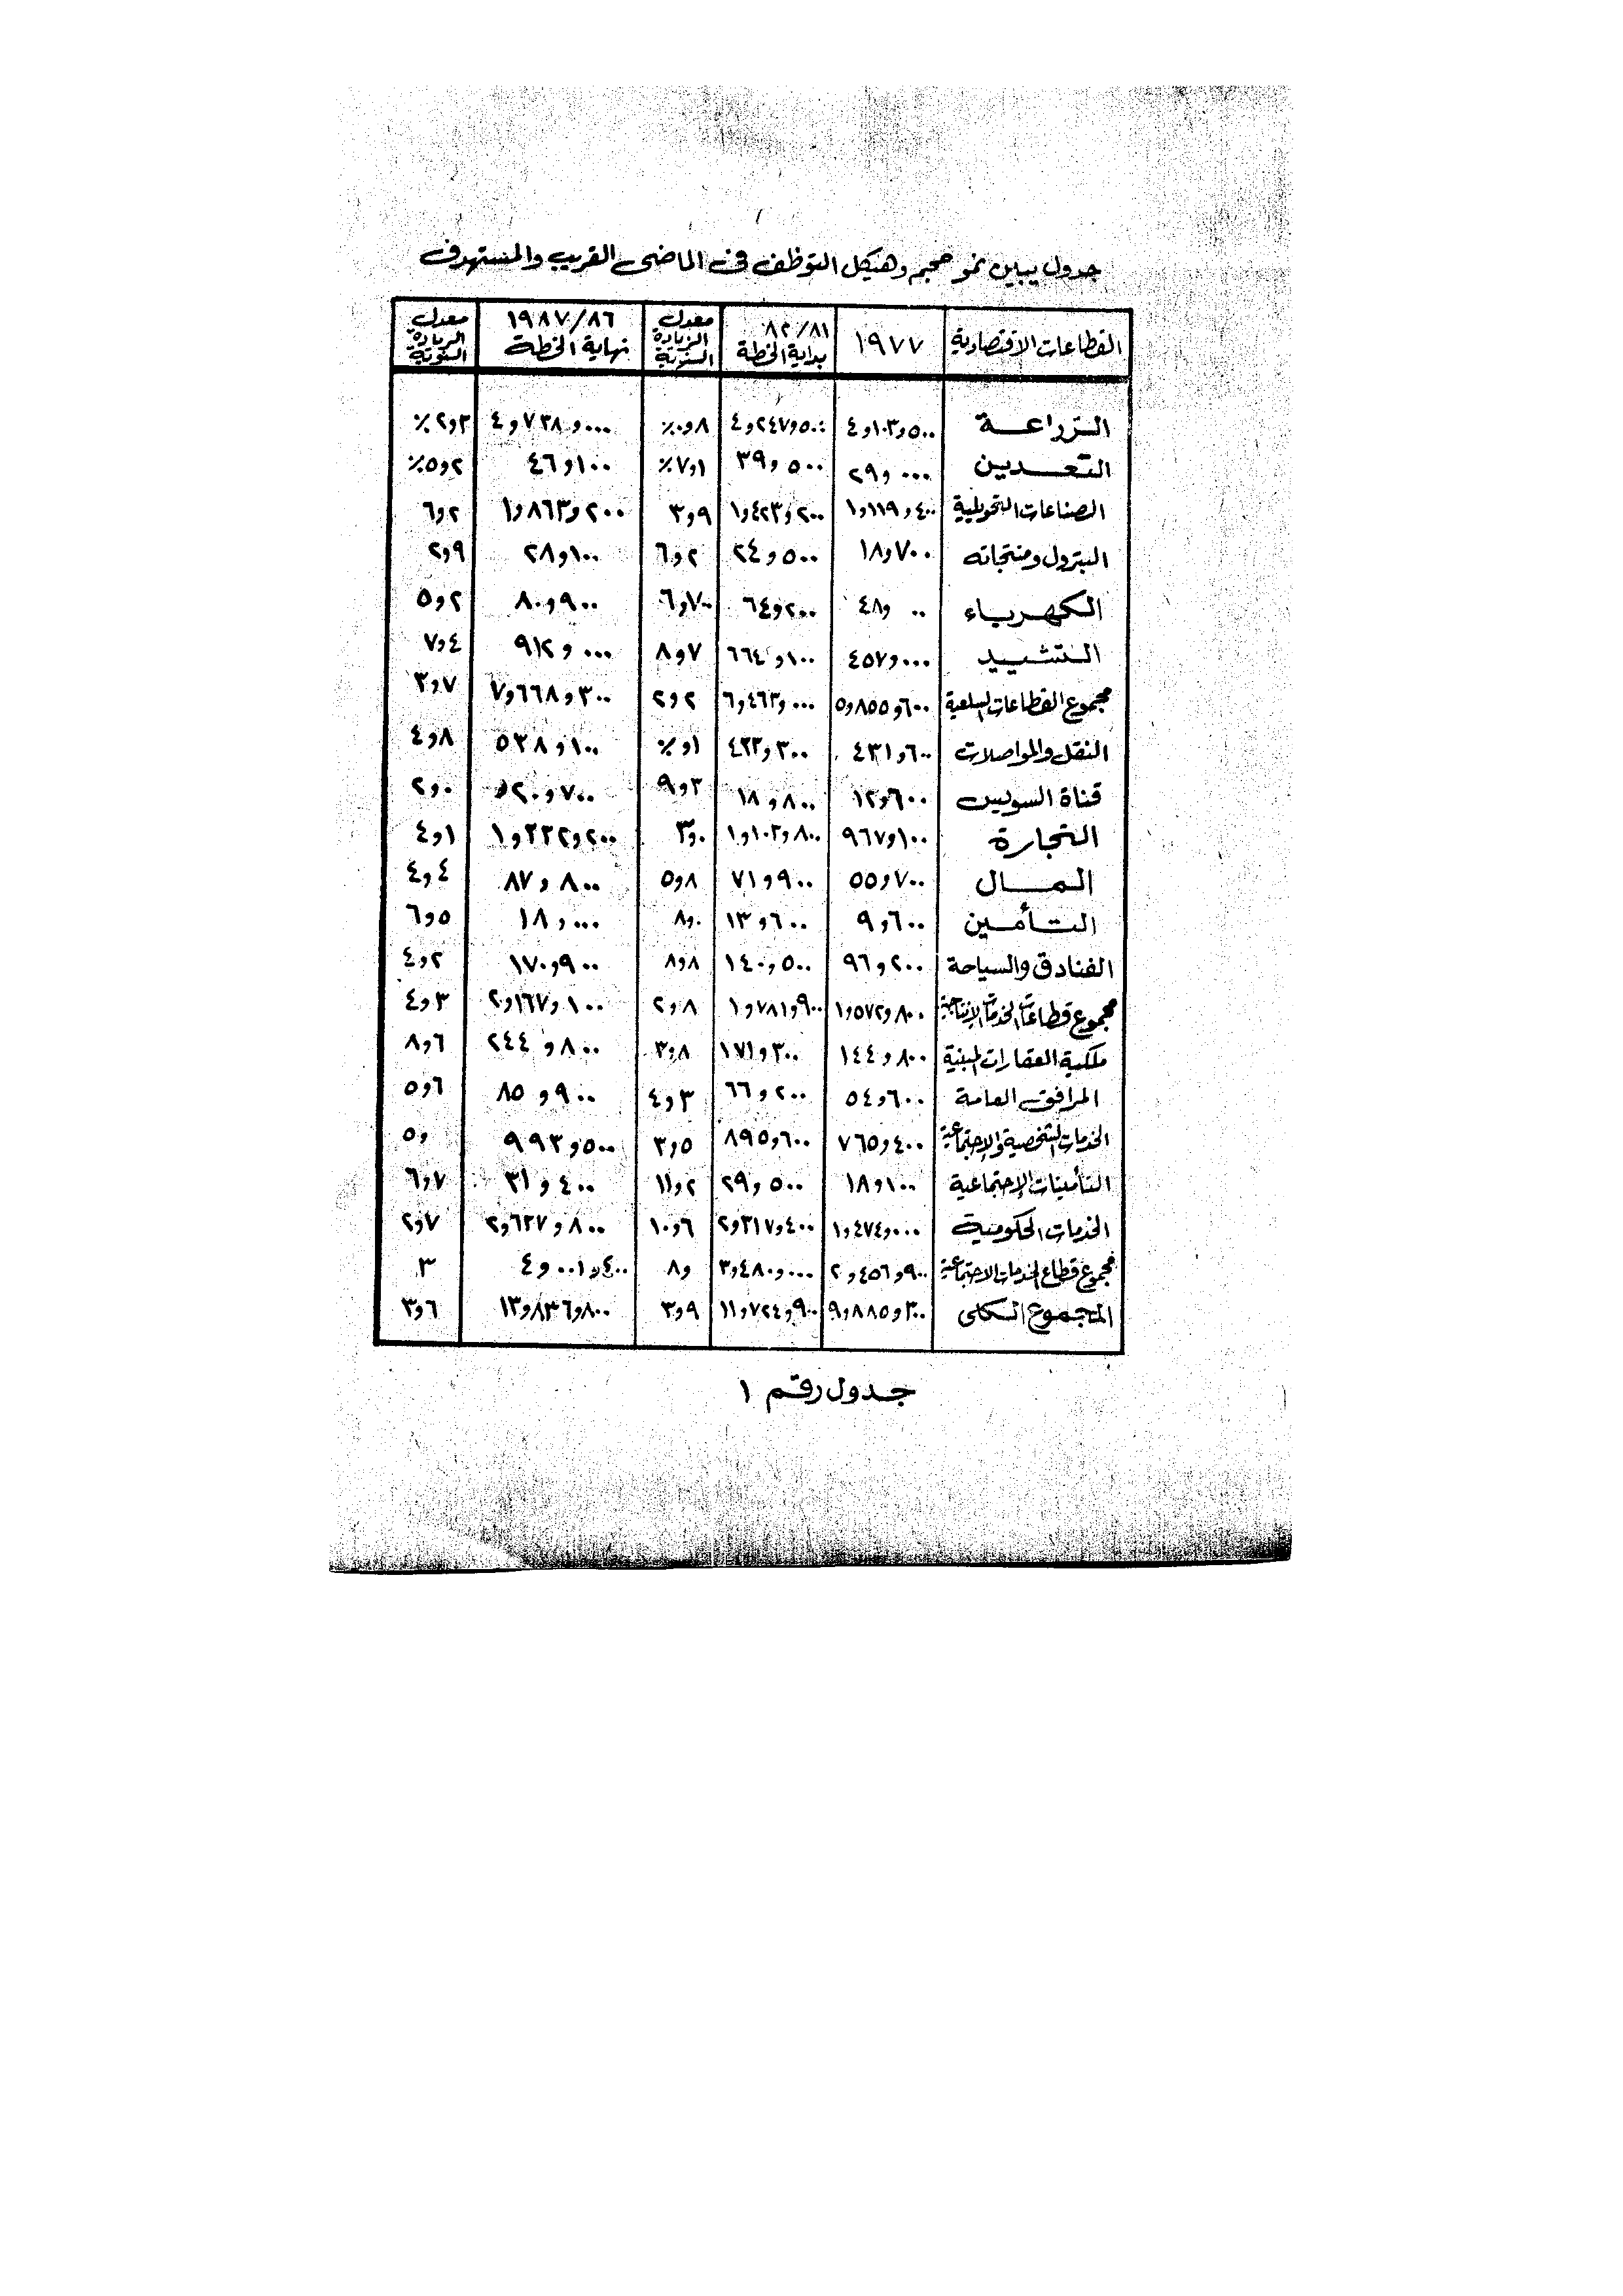 جدول يبين نمو حجم وهيكل التوظف فى الماضى القريب والمستهدف
القطاعات الاقتصادية ١٩٧٧ ٨٢/٨١ بداية الخطة معدل الزيادة السنوية ١٩٨٧/٨٦ نهاية الخطة معدل الزيادة السنوية
الزراعة ٤و١٠٣و٥٠٠ ٤و٢٤٧و٥٠٠ ٠و٨٪ ٤و٧٣٨و٠٠٠ ٢و٣٪
التعدين ٢٩و٠٠٠ ٣٩و٥٠٠ ٧و١٪ ٤٦و١٠٠ ٥و٢٪
الصناعات التحويلية ١و١١٩و٤٠٠ ١و٤٢٣و٢٠٠ ٣و٩ ١و٨٦٣و٢٠٠ ٦و٢
البترول ومنتجاته ١٨و٧٠٠ ٢٤و٥٠٠ ٦و٢ ٢٨و١٠٠ ٢و٩
الكهرباء ٤٨و٠٠ ٦٤و٢٠٠ ٦و٧٠٠ ٨٠و٩٠٠ ٥و٢
التشييد ٤٥٧و٠٠٠ ٦٦٤و١٠٠ ٨و٧ ٩١٢و٠٠٠ ٧و٤
مجموع القطاعات السلعية ٥و٨٥٥و٦٠٠ ٦و٤٦٣و٠٠٠ ٢و٢ ٧و٦٦٨و٣٠٠ ٣و٧
النقل والمواصلات ٤٣١و٦٠٠ ٤٢٣و٣٠٠ و١٪ ٥٣٨و١٠٠ ٤و٨
قناة السويس ١٢و٦٠٠ ١٨و٨٠٠ ٩و٣ ٢٠و٧٠٠ ٢و٠
التجارة ٩٦٧و١٠٠ ١و١٠٢و٨٠٠ ٣و٠ ١و٣٢٢و٢٠٠ ٤و١
المال ٥٥و٧٠٠ ٧١و٩٠٠ ٥و٨ ٨٧و٨٠٠ ٤و٤
التأمين ٩و٦٠٠ ١٣و٦٠٠ ٨و٠ ١٨و٠٠٠ ٦و٥
الفنادق والسياحة ٩٦و٢٠٠ ١٤٠و٥٠٠ ٨و٨ ١٧٠و٩٠٠ ٤و٢
مجموع قطاعات الخدمات الإنتاجية ١و٥٧٢و٨٠٠ ١و٧٨١و٩٠٠ ٢و٨ ٢و١٦٧و١٠٠ ٤و٣
ملكية العقارات المبنية ١٤٤و٨٠٠ ١٧١و٣٠٠ ٣و٨ ٢٤٤و٨٠٠ ٨و٦
المرافق العامة ٥٤و٦٠٠ ٦٦و٢٠٠ ٤و٣ ٨٥و٩٠٠ ٥و٦
الخدمات الشخصية والإجتماعية ٧٦٥و٤٠٠ ٨٩٥و٦٠٠ ٣و٥ ٩٩٣و٥٠٠ ٥و
التأمينات الإجتماعية ١٨و١٠٠ ٢٩و٥٠٠ ١١و٢ ٣١و٤٠٠ ٦و٧
الخدمات الحكومية ١و٤٧٤و٠٠٠ ٢و٣١٧و٤٠٠ ١٠و٦ ٢و٦٢٧و٨٠٠ ٢و٧
مجموع قطاع الخدمات الاجتماعية ٢و٤٥٦و٩٠٠ ٣و٤٨٠و٠٠٠ ٨و ٤و٠٠١و٤٠٠ ٣
المجموع الكلى ٩و٨٨٥و٣٠٠ ١١و٧٢٤و٩٠٠ ٣و٩ ١٣و٨٣٦و٨٠٠ ٣و٦
جدول رقم ١